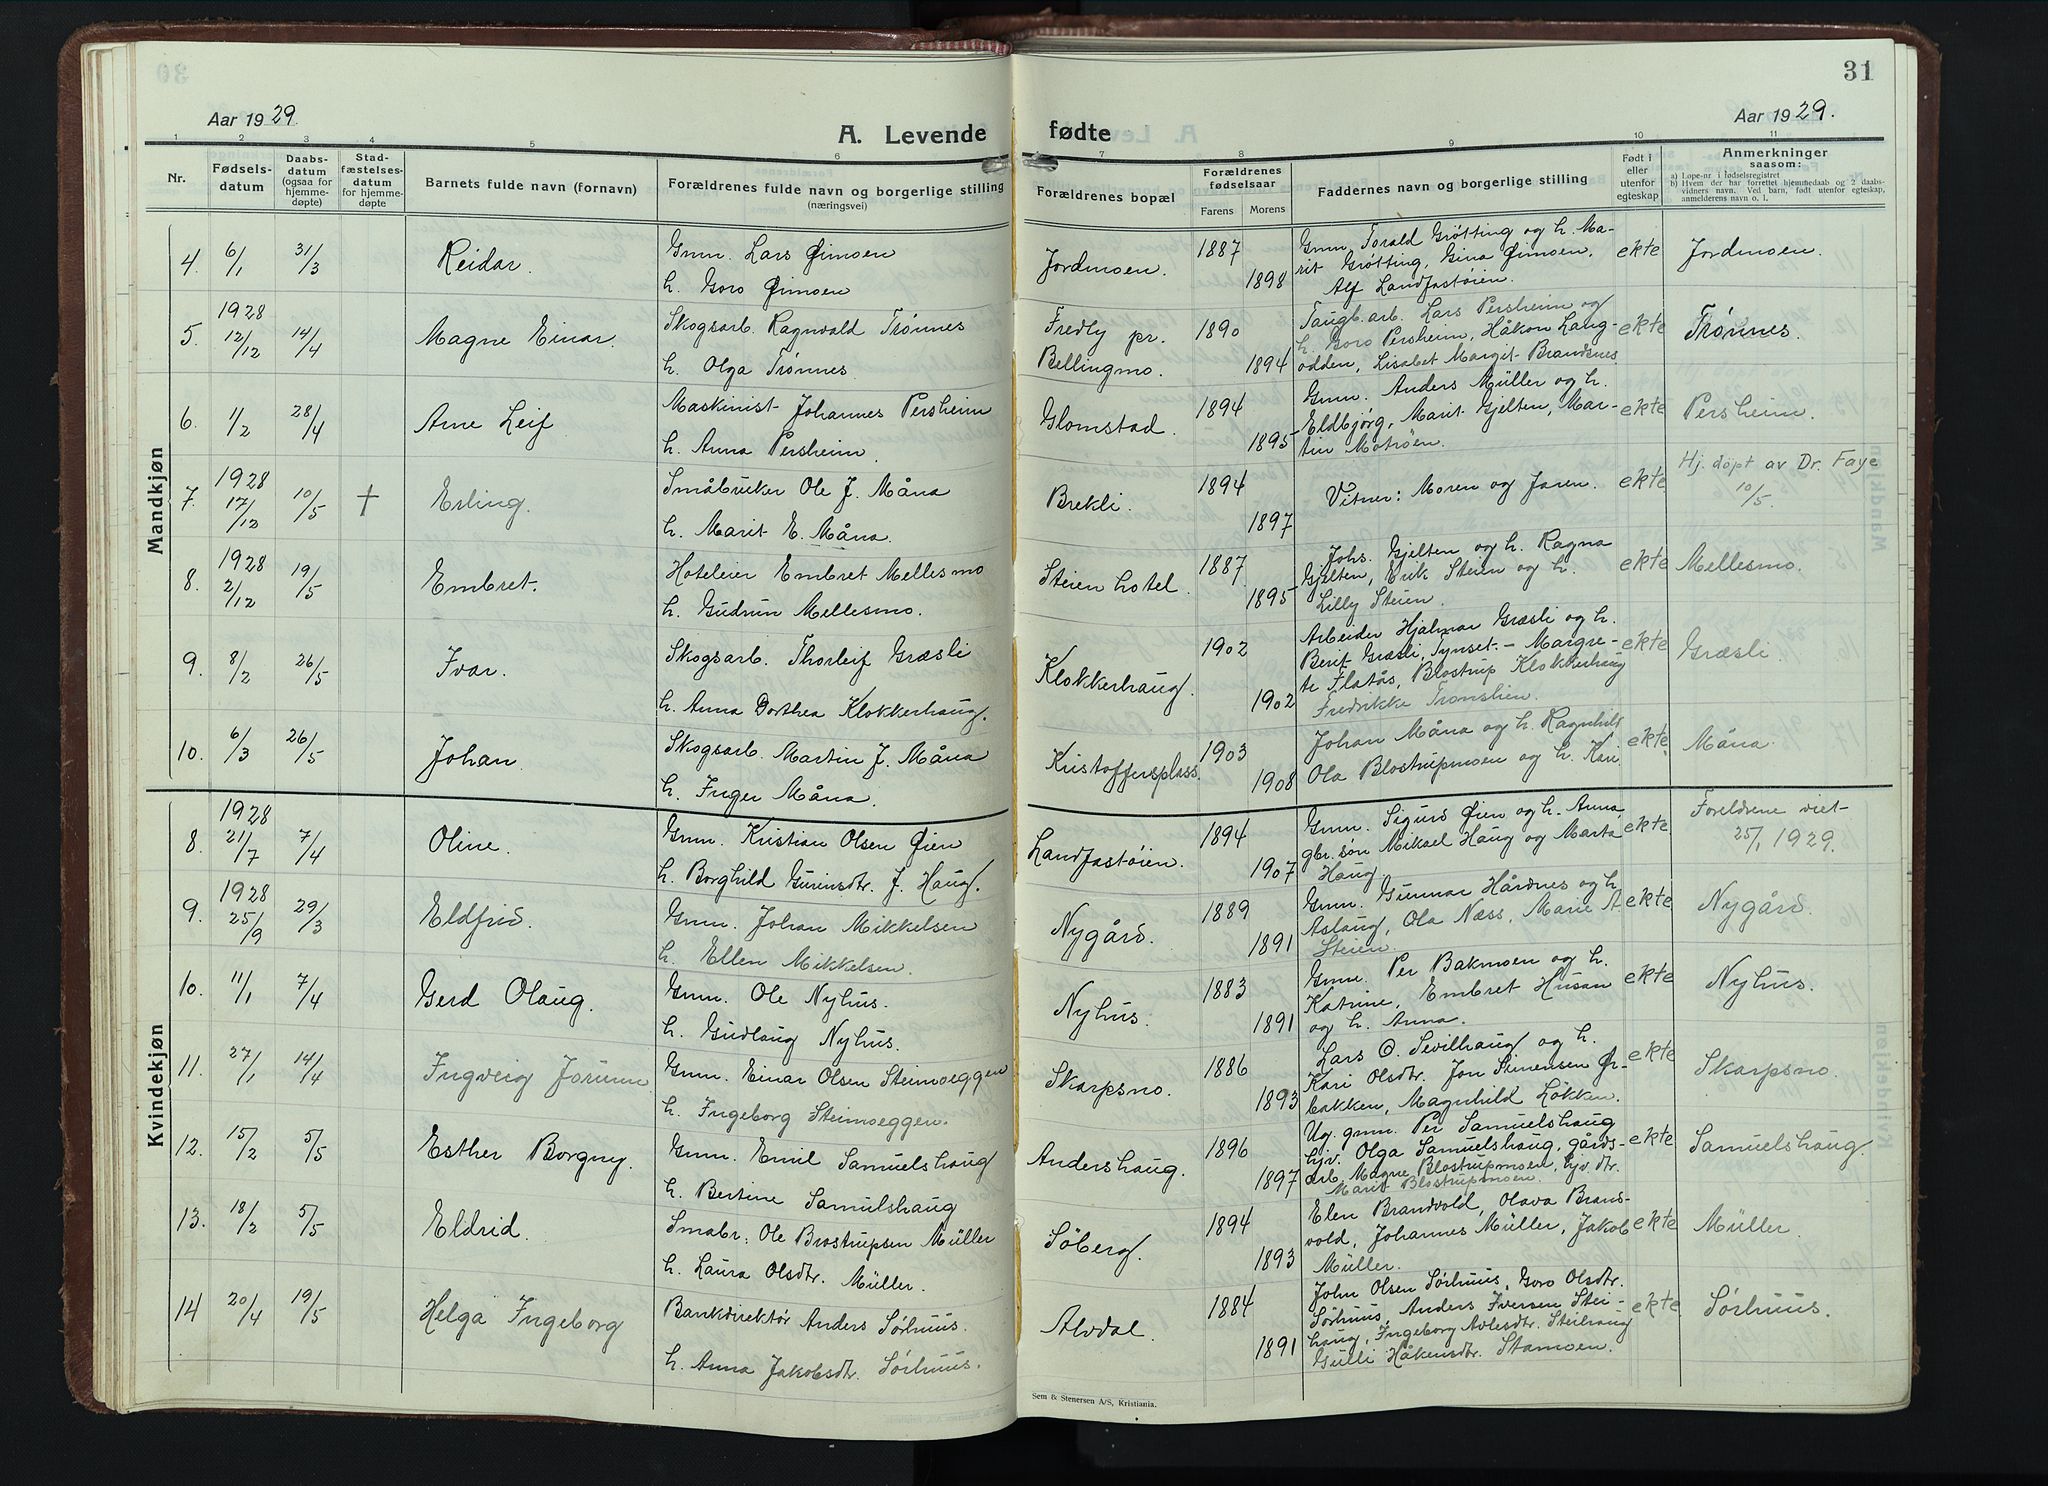 31
Aar 1929.
Aar 1929.
A. Levende fødte
1 2 3 4 5 6 7 8 9 10 11
Nr.
Fødselsdatum
Daabsdatum (ogsaa for hjemmedøpte)
Stadfæstelsesdatum for hjemmedøpte
Barnets fulde navn (fornavn)
Forældrenes fulde navn og borgerlige stilling
(næringsvei)
Forældrenes bopæl
Forældrenes fødselsaar
Farens
Morens
Faddernes navn og borgerlige stilling
Født i eller utenfor egteskap
Anmerkninger
saasom:
a) Løpe-nr i fødselsregistret
b) Hvem der har forrettet hjemmedaab og 2 daabsvidners navn. Ved barn, født utenfor egteskap, anmelderens navn o. l.
Mandkjøn
4. 6/1 31/3 Reidar. Gmn. Lars Øimoen
h. Goro Øimoen
Jordmoen. 1887 1898
Gmn. Torald Grøtting og h. Ma-
rit Grøtting, Gina Øimoen.
Alf Landfastøien.
ekte Jordmoen.
5. 1928 12/12 14/4 Magne Einar. Skogsarb. Ragnvald Trønnes
h. Olga Trønnes.
Fredly pr.
Bellingmo. 1890 1894
Taugb.arb. Lars Persheim og
h. Goro Persheim, Håkon Laug-
odden, Lisabet Margit Brandsnes
ekte Trønnes.
6. 1/2 28/4 Arne Leif Maskinist Johannes Persheim
h. Anna Persheim.
Glomstad. 1894 1895
Gmn. Anders Müller og h.
Eldbjörg, Marit Gjelten, Mar-
tin Motröen.
ekte Persheim.
7. 1928 17/12 10/5 † Erling. Småbruker Ole J. Måna
h. Marit E. Måna.
Brekli. 1894 1897
Vitner: Moren og faren.
ekte Hj. døpt av Dr. Faye
10/5.
8. 1928 2/12 19/5 Embret. Hoteleier Embret Mellesmo
h. Gudrun Mellesmo.
Steien hotel. 1887 1895
Johs. Gjelten og h. Ragna
Gjelten, Erik Steien og h.
Lilly Steien.
ekte Mellesmo.
9. 8/2 26/5 Ivar. Skogsarb. Thorleif Græsli
h. Anna Dorthea Klokkerhaug.
Klokkerhaug. 1902 1902
Arbeider Hjalmar Græsli og h.
Berit Græsli, Tynset. - Margre-
te Flatås, Blostrup Klokkerhaug
Fredrikke Tronslien.
ekte Græsli.
10. 6/3 26/5 Johan. Skogsarb. Martin J. Måna
h. Inger Måna.
Kristoffersplass. 1903 1908
Johan Måna og h. Ragnhild
Ola Blostrupmoen og h. Kari.
ekte. Måna.
Kvindekjøn
8. 1928 21/7 7/4 Oline. Gmn. Kristian Olsen Øien
h. Borghild Gurinsdtr. f. Haug.
Landfastøien. 1894 1907
Gmn. Sigurd Øien og h. Anna,
gbr. søn Mikael Haug og Marta
Haug.
ekte. Foreldrene viet
25/1 1929.
9. 1928 25/9 29/3 Eldfrid. Gmn. Johan Mikkelsen
h. Ellen Mikkelsen.
Nygård. 1889 1891
Gmn. Gunnar Hårdnes og h.
Aslaug, Ola Næss, Marie A
Steien.
ekte Nygård.
10. 11/1 7/4 Gerd Olaug. Gmn. Ole Nyhus.
h. Gudlaug Nyhus.
Nyhus. 1883 1891
Gmn. Per Bakmoen og h.
Katrine, Embret Husan
og h. Anna.
ekte Nyhus.
11. 27/1 14/4 Ingveig Jorunn Gmn. Einar Olsen Steimoeggen
h. Ingeborg Steimoeggen.
Skarpsno. 1886 1893
Lars O. Sevilhaug og h.
Kari Olsdtr. Jon Simensen Ør-
bakken, Magnhild Løkken.
ekte Skarpsno.
12. 15/2 5/5 Esther Borgny. Gmn. Emil Samuelshaug
h. Bertine Samulshaug
Andershaug. 1896 1897
Ug. gmn. Per Samuelshaug
hjv. Olga Samuelshaug, gårds-
arb. Magne Blostrupmoen, hjv. dtr.
Marit Blostrupmoen.
ekte Samuelshaug.
13. 18/2 5/5 Eldrid. Smabr. Ole Brostrupsen Müller
h. Laura Olsdtr. Müller.
Søberg. 1894 1893
Elen Brandvold, Olava Brand-
vold, Johannes Müller, Jakob
Müller.
ekte Müller.
14 20/4 19/5 Helga Ingeborg Bankdirektør Anders Sørhuus.
h. Anna Jakobsdtr. Sørhuus.
Alvdal. 1884 1891
John Olsen Sørhuus, Goro Olsdtr.
Sørhuus, Anders Iversen Stei-
haug, Ingeborg Avlesdtr. Steihaug
Gulli Håkensdtr. Stamoen.
ekte Sørhuus.
Sem & Stenersen A/S, Kristiania.